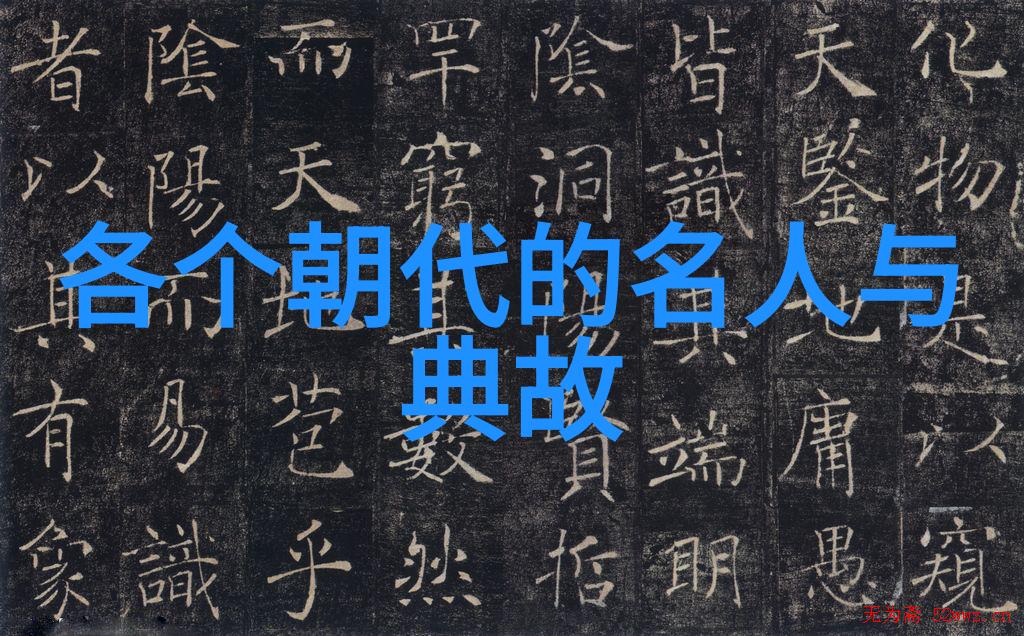 各个朝代的名人与
典故
化物是以窺
天鑒地庸愚
皆識其端明
陰洞陽賢哲
罕窮其數然
而天地苞乎
陰陽而易識
者以其有象
无为斋 52wwz.cn